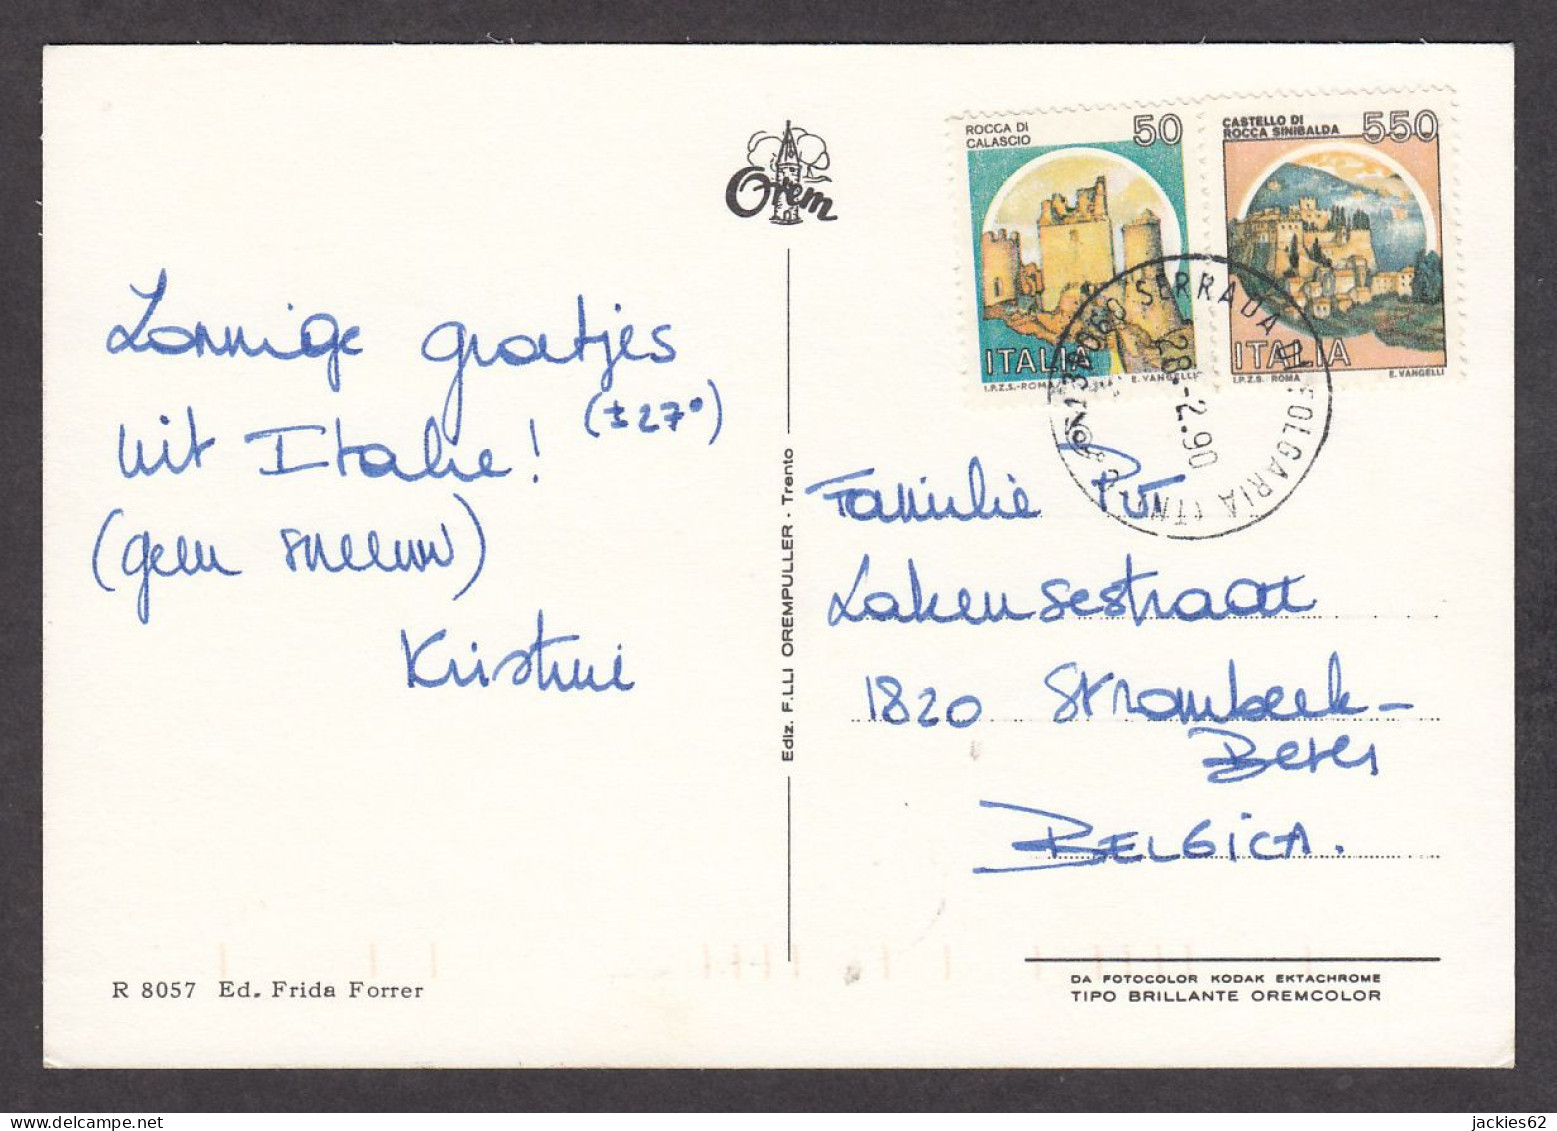 Orem
ROCCA DI
CALASCIO
50
ITALIA
I.P.Z.S.-ROMA E. VANGELLI
CASTELLO DI
ROCCA SINIBALDA
550
ITALIA
I.P.Z.S. ROMA E. VANGELLI
SERRADA DI FOLGARIA (TN)
28.-2.90
Zonnige groetjes
uit Italie! (± 27°)
(geen sneeuw)
Kristine
Ediz. F.LLI OREMPULLER - Trento
Familie
Lakensestraat
1820 Strombeek-
Bever
BELGICA.
R 8057 Ed. Frida Forrer
DA FOTOCOLOR KODAK EKTACHROME
TIPO BRILLANTE OREMCOLOR
jackies62